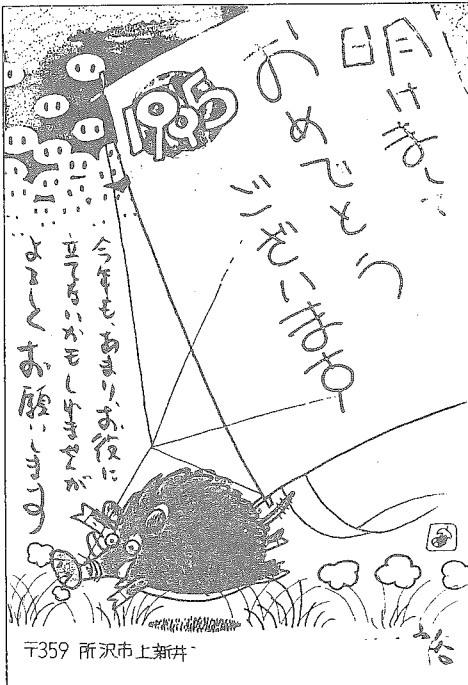 明けまして
おめでとう
ございます
1995
今年も、あまりお役に
立てないかもしれませんが
よろしくお願いします
〒359 所沢市上新井